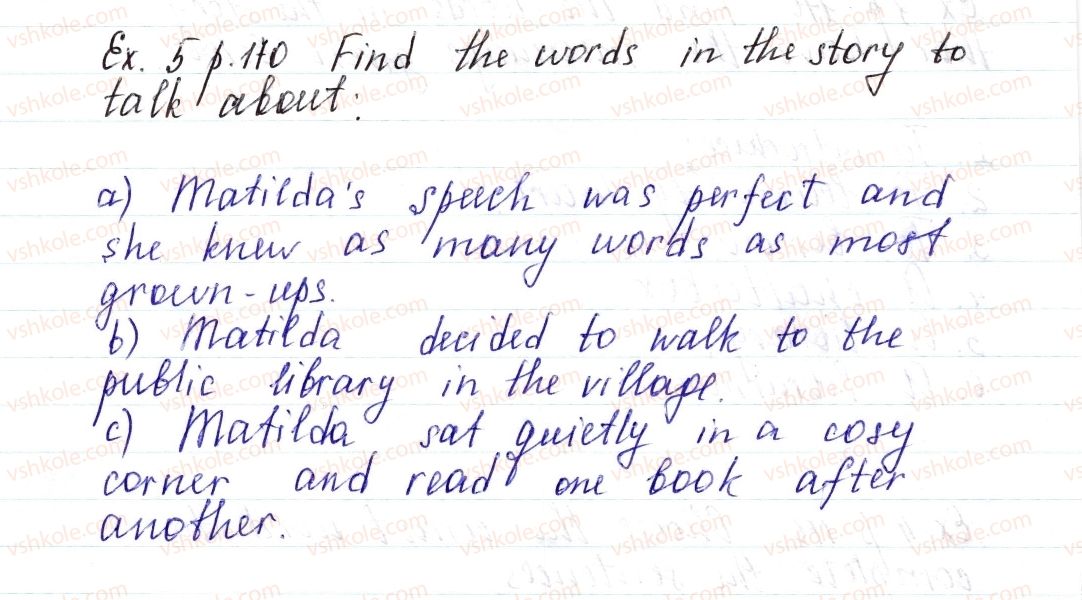 Ex. 5 p. 170 Find the words in the story to
talk about:
a) Matilda's speech was perfect and
she knew as many words as most
grown-ups.
b) Matilda decided to walk to the
public library in the village.
c) Matilda sat quietly in a cosy
corner and read one book after
another.